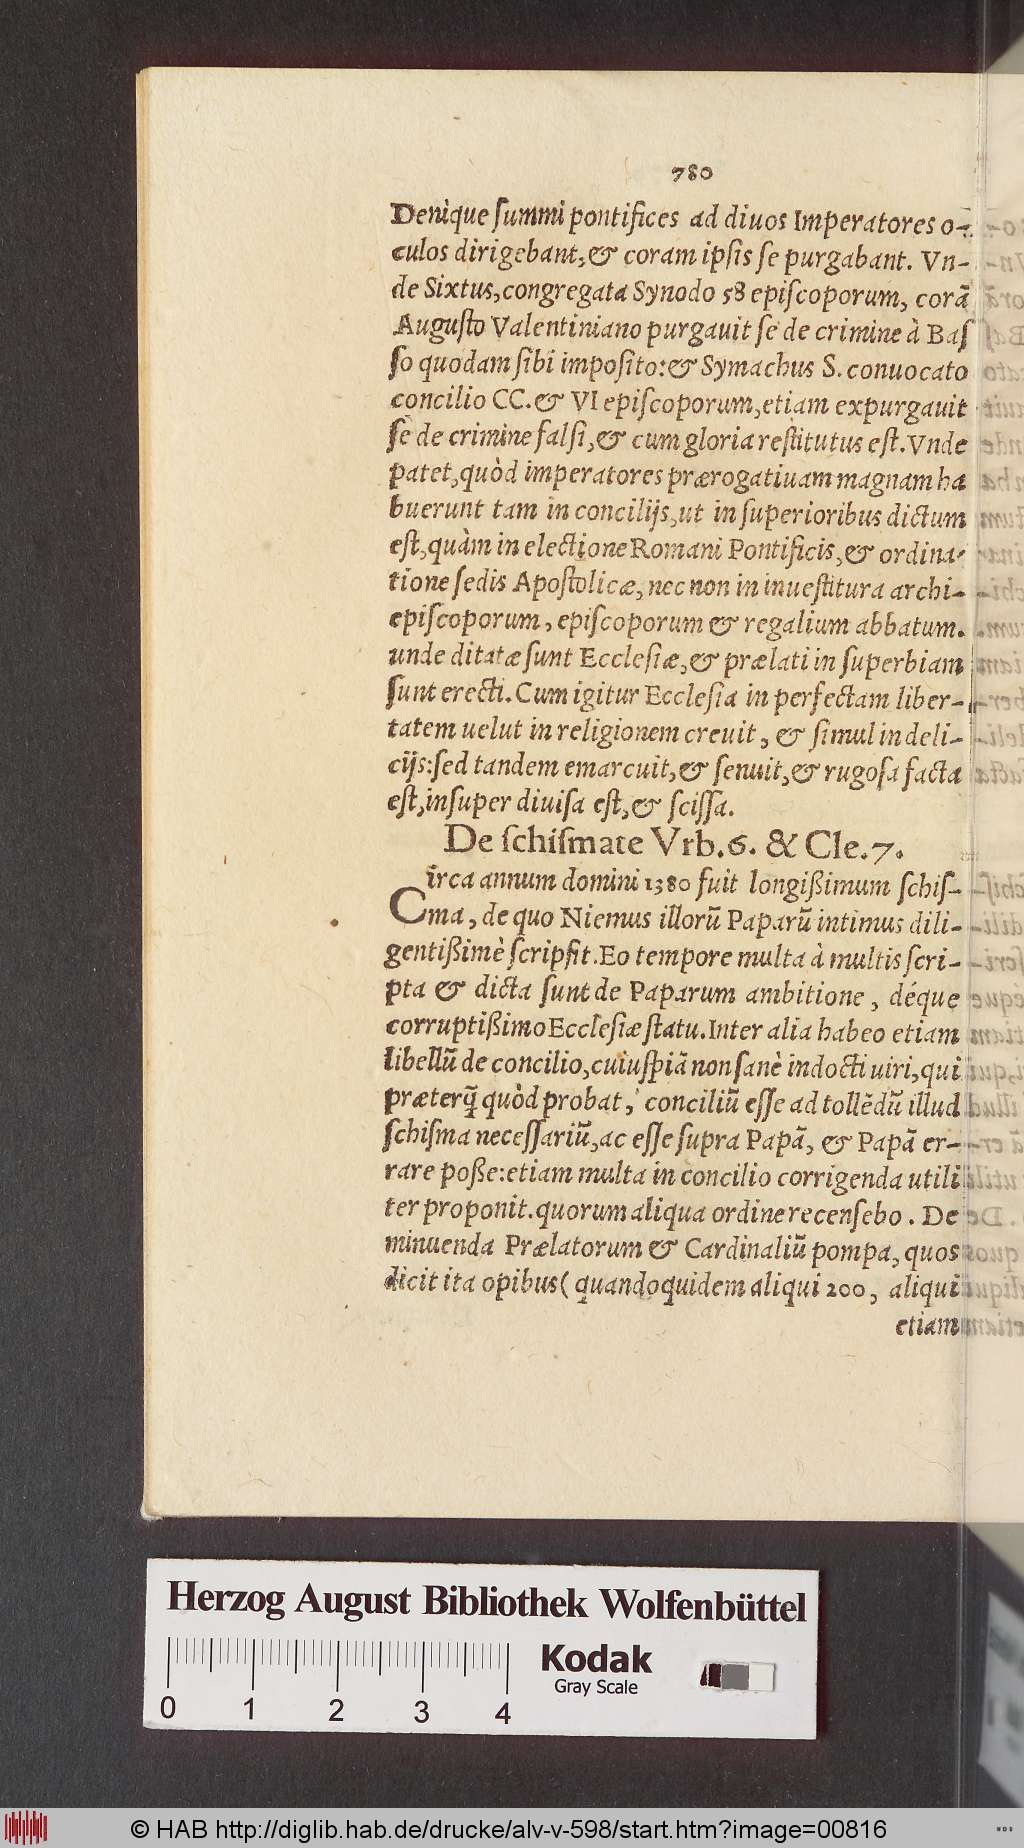 780
Denique ſummi pontifices ad diuos Imperatores o-
culos dirigebant, & coram ipſis ſe purgabant. Vn-
de Sixtus, congregata Synodo 58 epiſcoporum, corā
Auguſto Valentiniano purgauit ſe de crimine à Baſ
ſo quodam ſibi impoſito: & Symachus S. conuocato
concilio CC. & VI epiſcoporum, etiam expurgauit
ſe de crimine falſi, & cum gloria reſtitutus eſt. Vnde
patet, quòd imperatores prærogatiuam magnam ha
buerunt tam in concilijs, ut in ſuperioribus dictum
eſt, quàm in electione Romani Pontificis, & ordina-
tione ſedis Apoſtolicæ, nec non in inueſtitura archi-
epiſcoporum, epiſcoporum & regalium abbatum.
unde ditatæ ſunt Eccleſiæ, & prælati in ſuperbiam
ſunt erecti. Cum igitur Eccleſia in perfectam liber-
tatem uelut in religionem creuit, & ſimul in deli-
cijs: ſed tandem emarcuit, & ſenuit, & rugoſa facta
eſt, inſuper diuiſa eſt, & ſciſſa.
De ſchiſmate Vrb. 6. & Cle. 7.
Circa annum domini 1380 fuit longiſſimum ſchiſ-
ma, de quo Niemus illorū Paparū intimus dili-
gentißimè ſcripſit. Eo tempore multa à multis ſcri-
pta & dicta ſunt de Paparum ambitione, déque
corruptißimo Eccleſiæ ſtatu. Inter alia habeo etiam
libellū de concilio, cuiuſpiā non ſanè indocti uiri, qui
præterq̃ quòd probat, conciliū eſſe ad tollēdū illud
ſchiſma neceſſariū, ac eſſe ſupra Papā, & Papā er-
rare poße: etiam multa in concilio corrigenda utili
ter proponit. quorum aliqua ordine recenſebo. De
minuenda Prælatorum & Cardinaliū pompa, quos
dicit ita opibus (quandoquidem aliqui 200, aliqui
etiam
Herzog August Bibliothek Wolfenbüttel
Kodak
Gray Scale
0 1 2 3 4
© HAB http://diglib.hab.de/drucke/alv-v-598/start.htm?image=00816